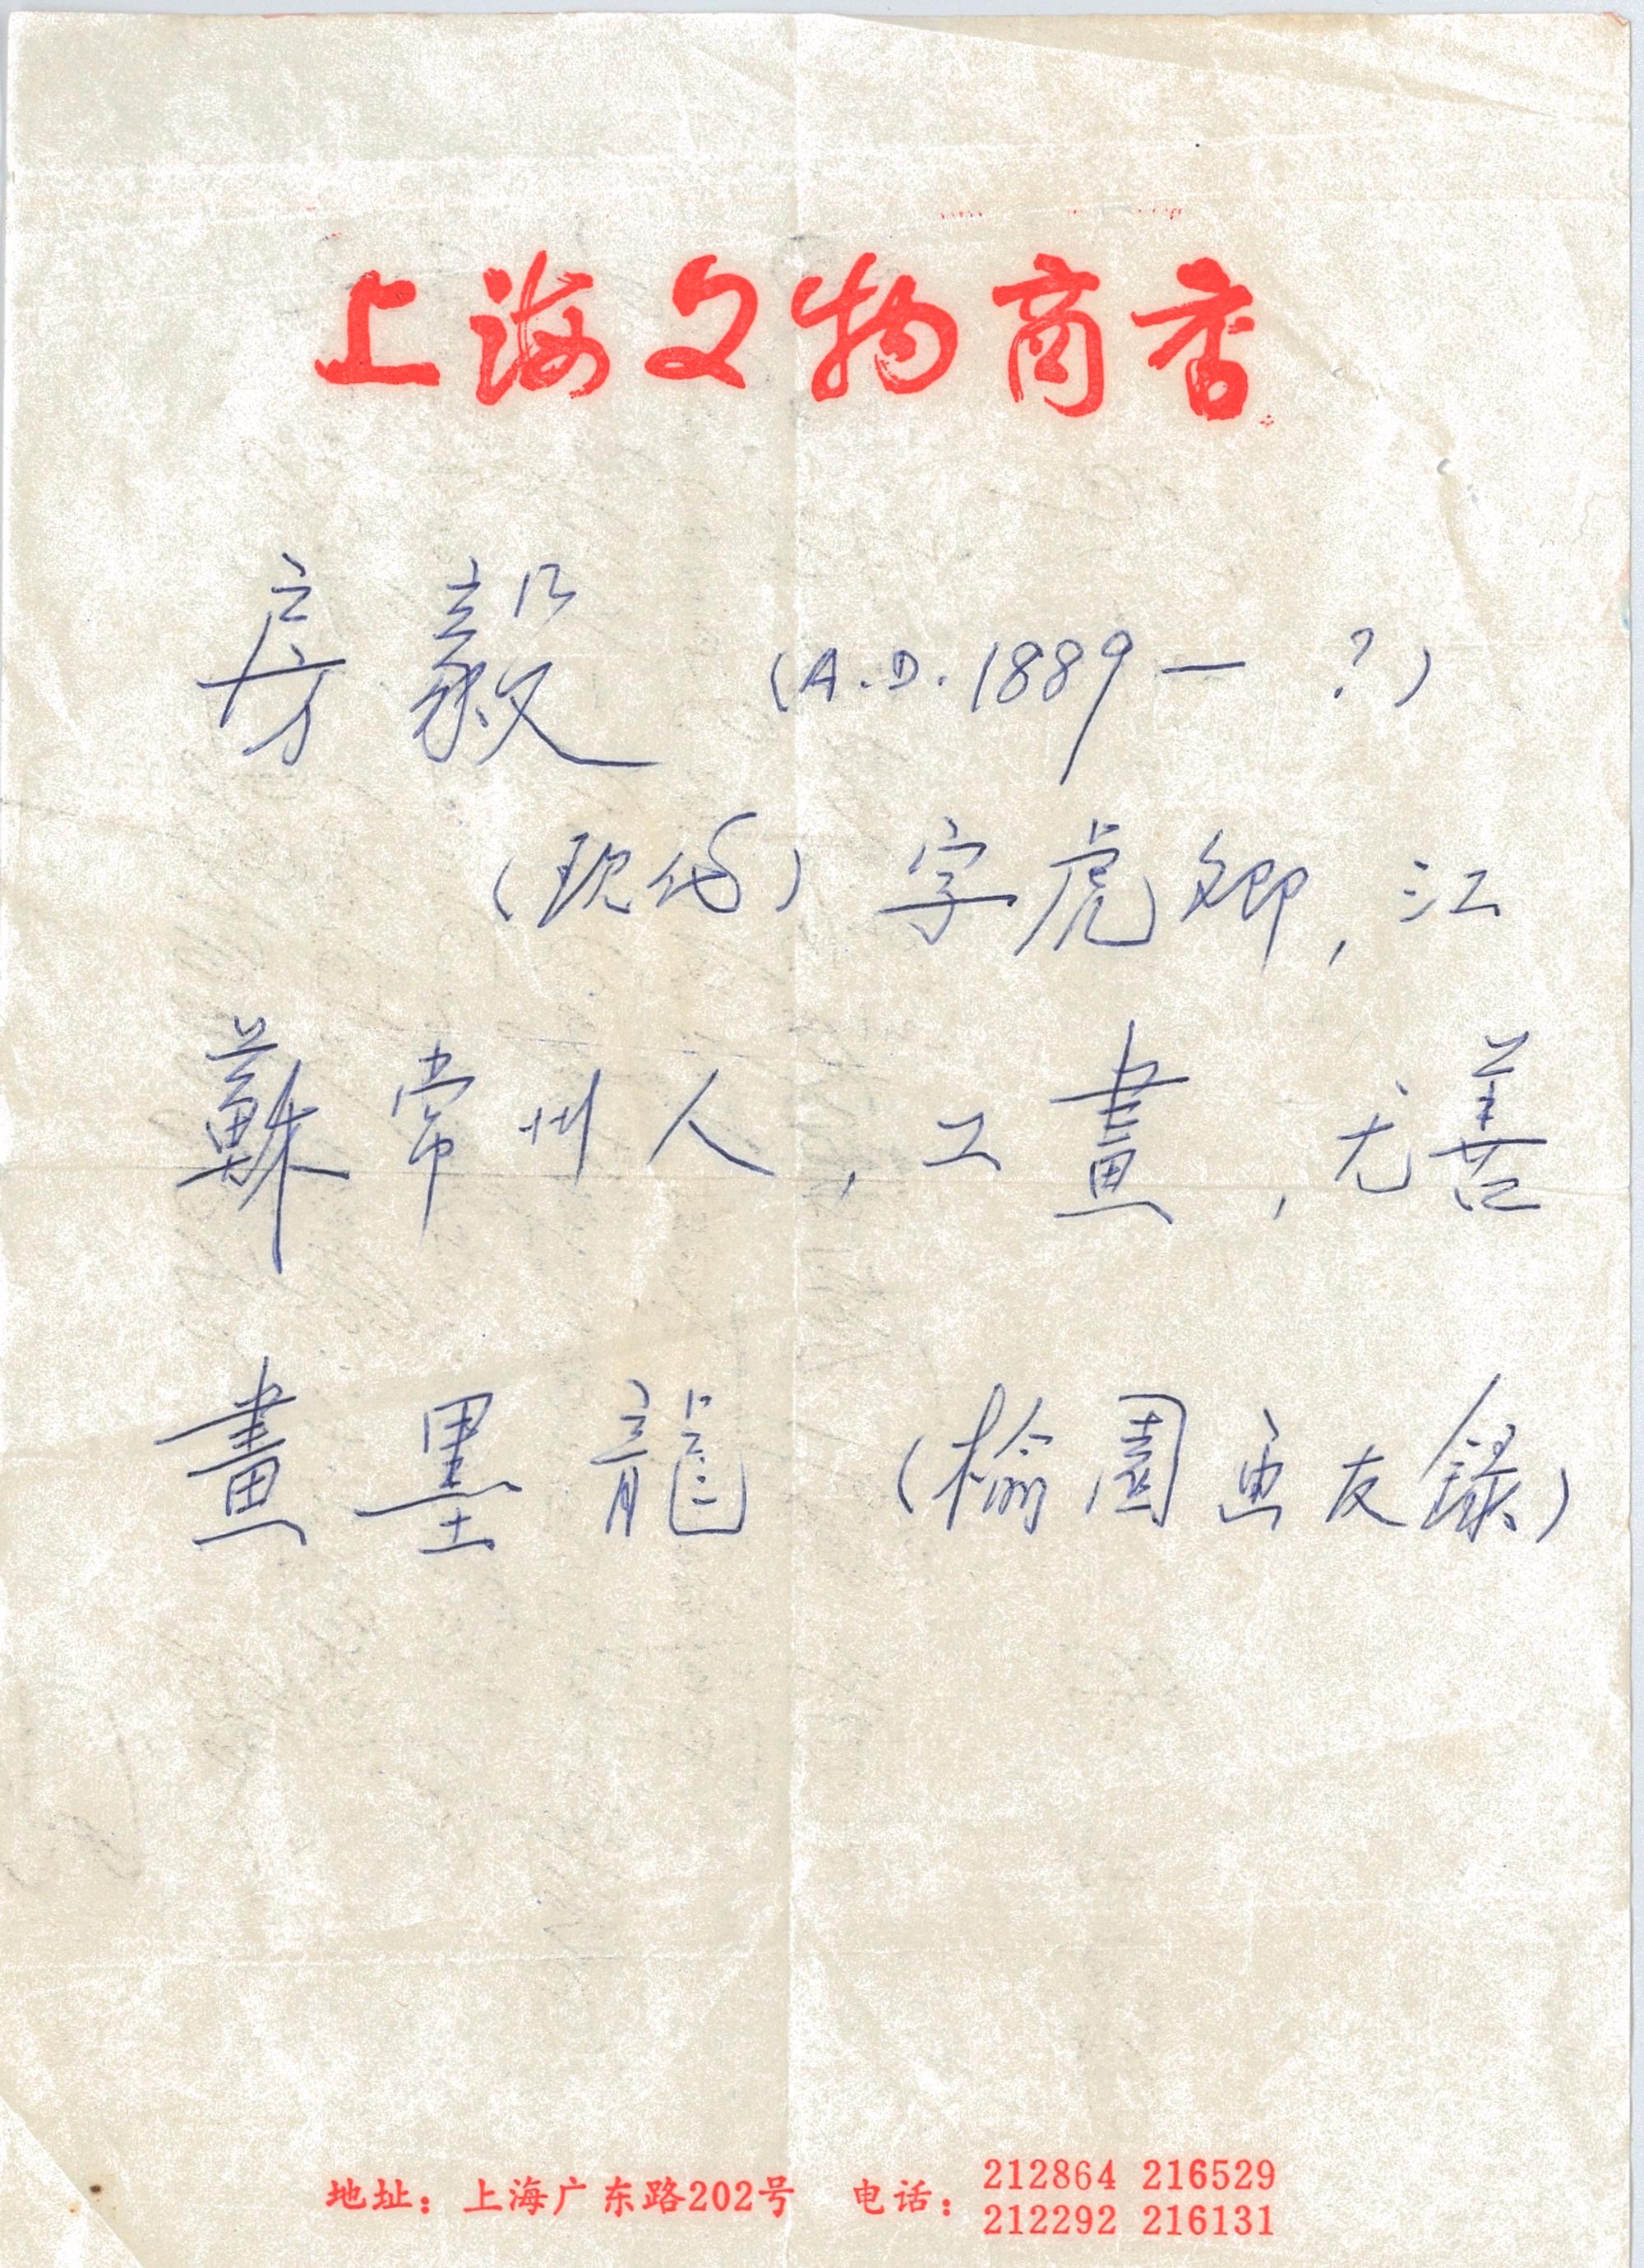 上海文物商店
房毅 (A.D.1889— ?)
(现代) 字虎卿，江
蘇常州人，工畫，尤善
畫墨龍 (榆園画友録)
地址：上海广东路202号 电话：212864 216529
212292 216131